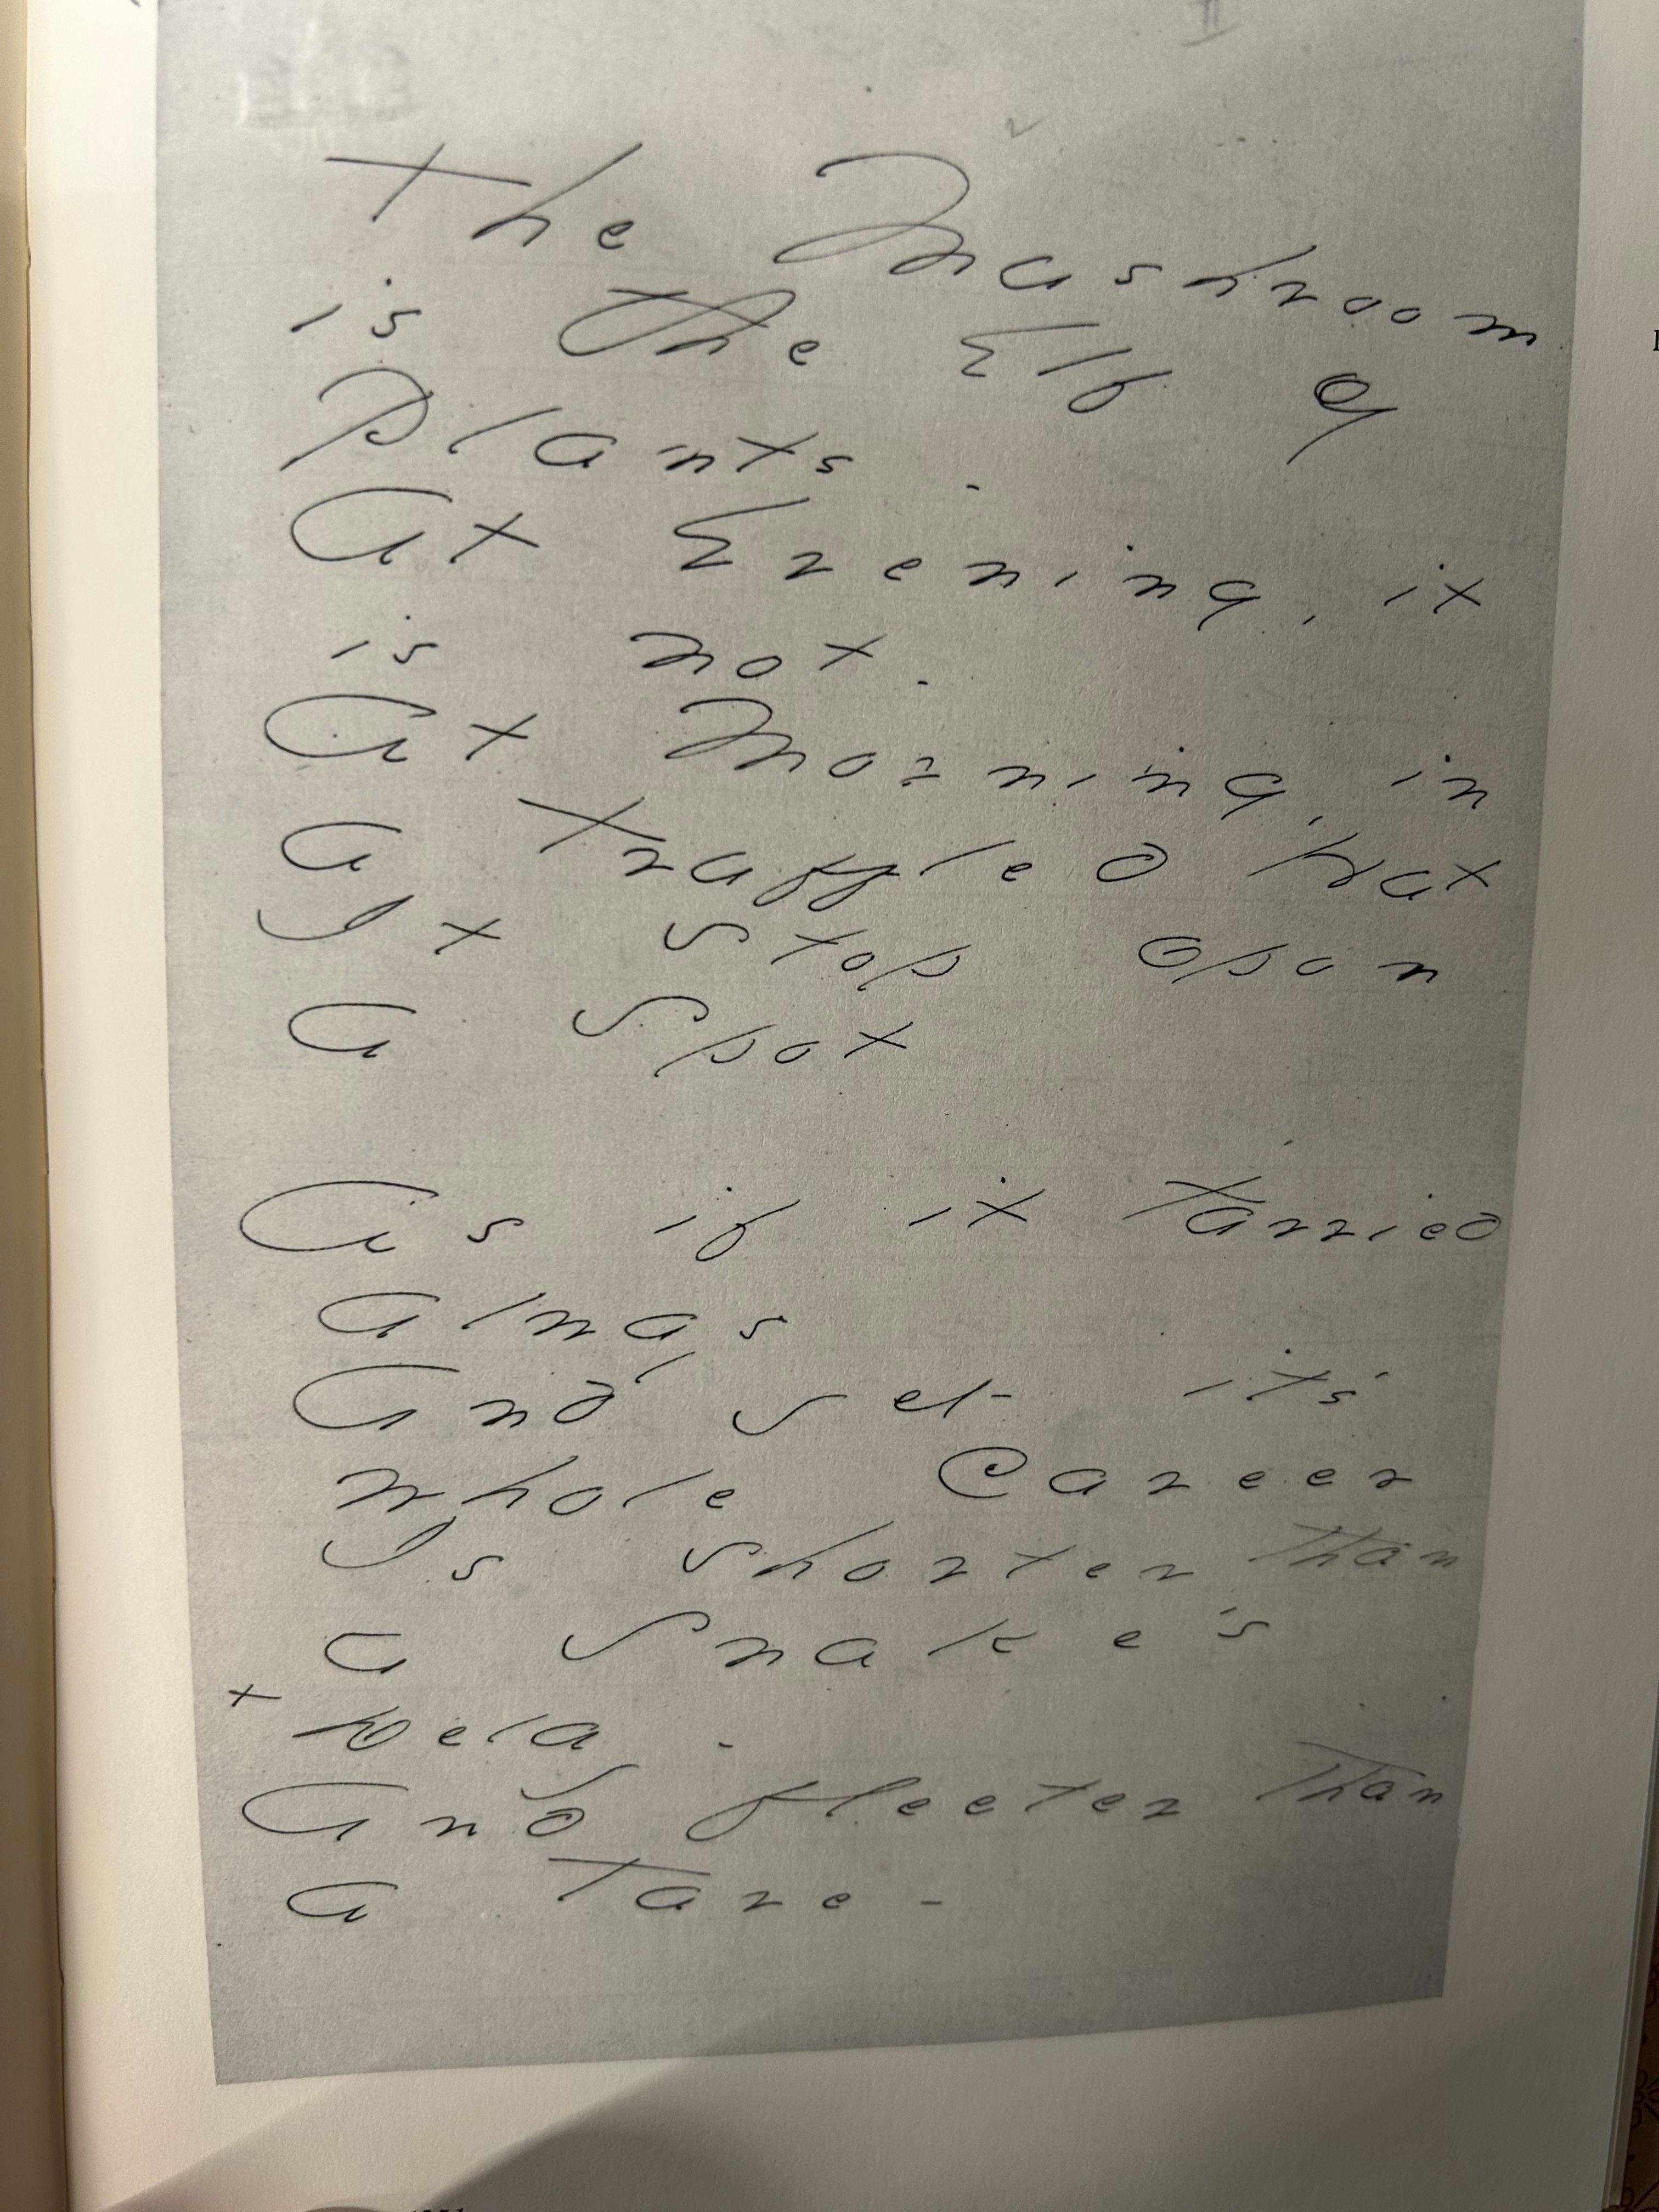 The Mushroom
is the Elf of
Plants -
At Evening, it
is not.
At Morning, in
a Truffled Hut
It stop opon
a Spot

As if it tarried
always
And yet it's
whole Career
Is shorter than
a Snake's
+ Delay -
And fleeter than
a Tare -